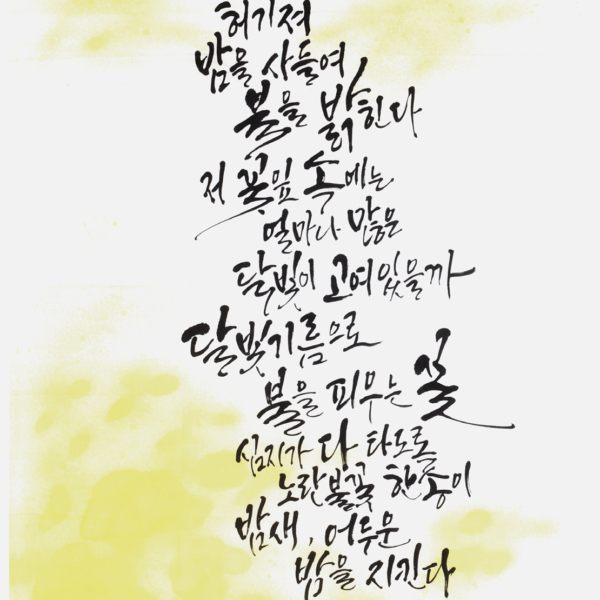 허기져
밤을 사들여
불을 밝힌다
저 꽃잎 속에는
얼마나 많은
달빛이 고여있을까
달빛기름으로
불을 피우는 꽃
심지가 다 타도록
노란불꽃 한송이
밤새, 어두운
밤을 지킨다